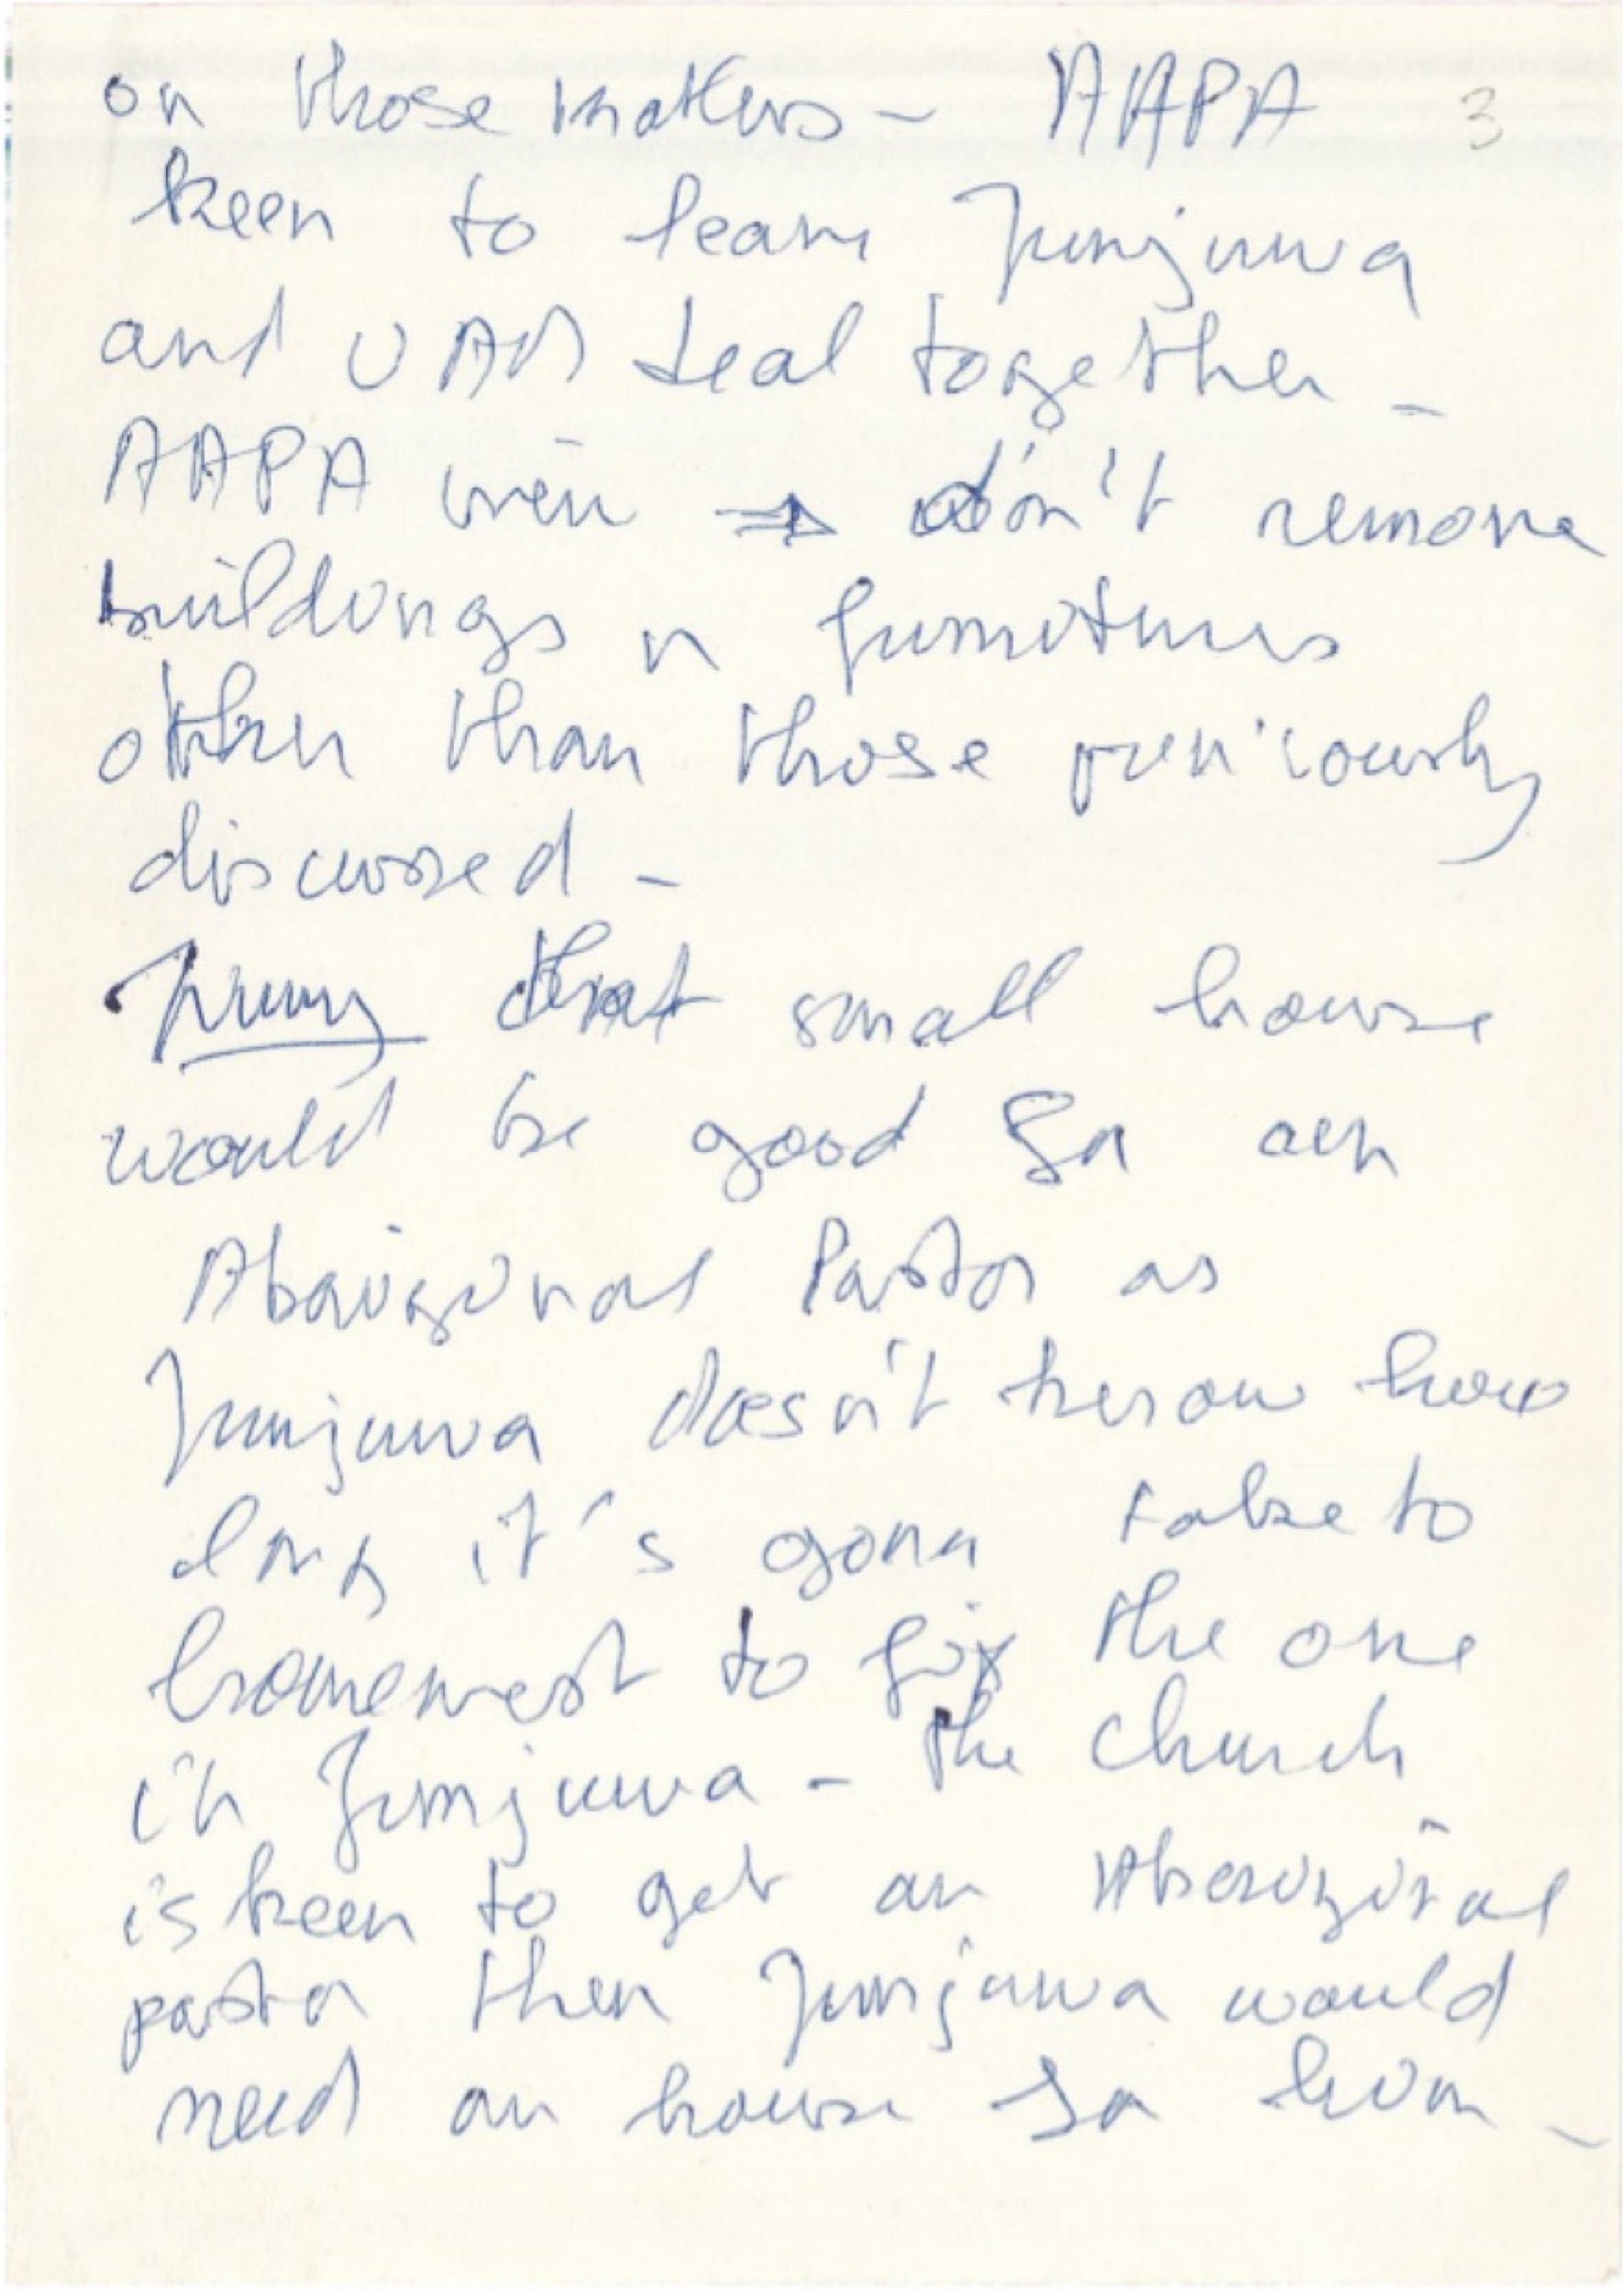 on those matters - AAPA 3
keen to leave Junjuwa
and UAM deal together -
AAPA view → don't remove
buildings or furnitures
other than those previously
discussed -
that small house
would be good for an
Aboriginal Pastor as
Junjuwa doesn't know how
long it's gona take to
homewest to fix the one
in Junjuwa - the church
is keen to get an Aboriginal
pastor then Junjuwa would
need an house for him -